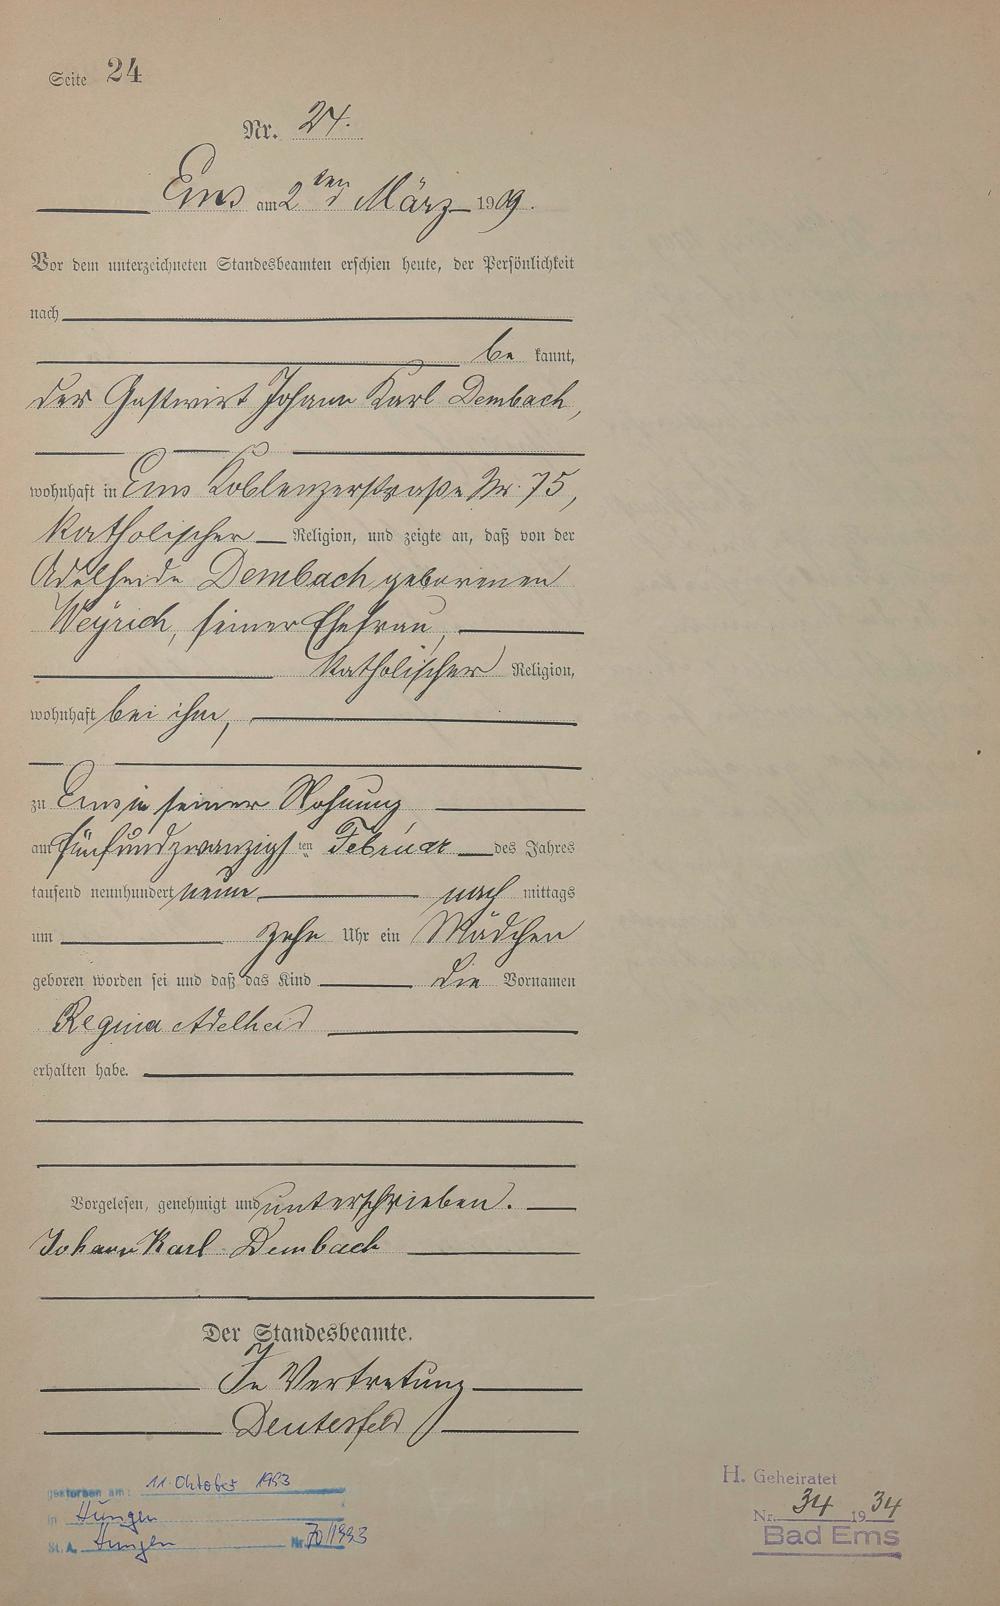 Seite 24
Nr. 24.
Ems am 2ten März 1909.
Vor dem unterzeichneten Standesbeamten erschien heute, der Persönlichkeit
nach
be kannt,
der Gastwirt Johann Karl Dembach,
wohnhaft in Ems Koblenzerstraße Nr. 75,
katholischer Religion, und zeigte an, daß von der
Adelheide Dembach geborenen
Weyrich, seiner Ehefrau,
katholischer Religion,
wohnhaft bei ihm,
zu Ems in seiner Wohnung
am fünfundzwanzigsten Februar des Jahres
tausend neunhundert neun nach mittags
um zehn Uhr ein Mädchen
geboren worden sei und daß das Kind die Vornamen
Regina Adelheid
erhalten habe.
Vorgelesen, genehmigt und unterschrieben.
Johann Karl Dembach
Der Standesbeamte.
In Vertretung
gestorben am: 11. Oktober 1993
in Hungen
St. A. Hungen Nr. 70/1993
H. Geheiratet
Nr. 34 1934
Bad Ems